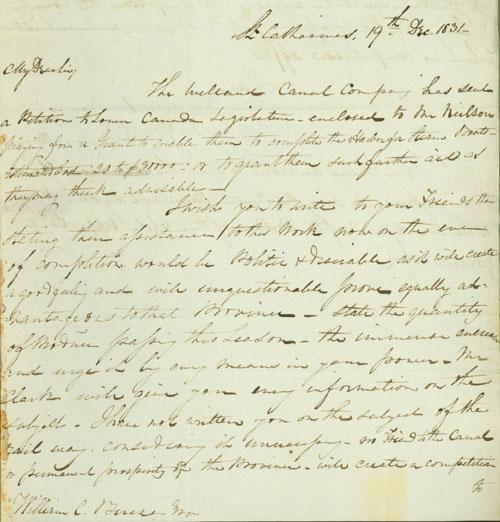 St. Catharines, 19th Dec. 1831
My Dear Sir,
The Welland Canal Company has sent
a Petition to Lower Canada Legislature - enclosed to Mr Neilson
praying for a Grant to enable them to complete the Harbor for Steam Boats -
Estimated Cost 25 to £30000 - or to grant them such further aid as
they may think adviseable -
I wish you to write to your Friends there
stating their assistance to this Work now on the eve
of completion would be Politic & desirable as it will create
a good feeling and will unquestionable prove equally ad-
vantageous to that Province - state the quantity
of Produce passing this Season - the immense
and urge it by any means in your power - Mr
Clark will give you any information on the
subject - I have not written you on the subject of the
rail way considering it unnecessary - no Friend to the Canal
or permanent prosperity of the Province - will create a competition
to
William C. Esq